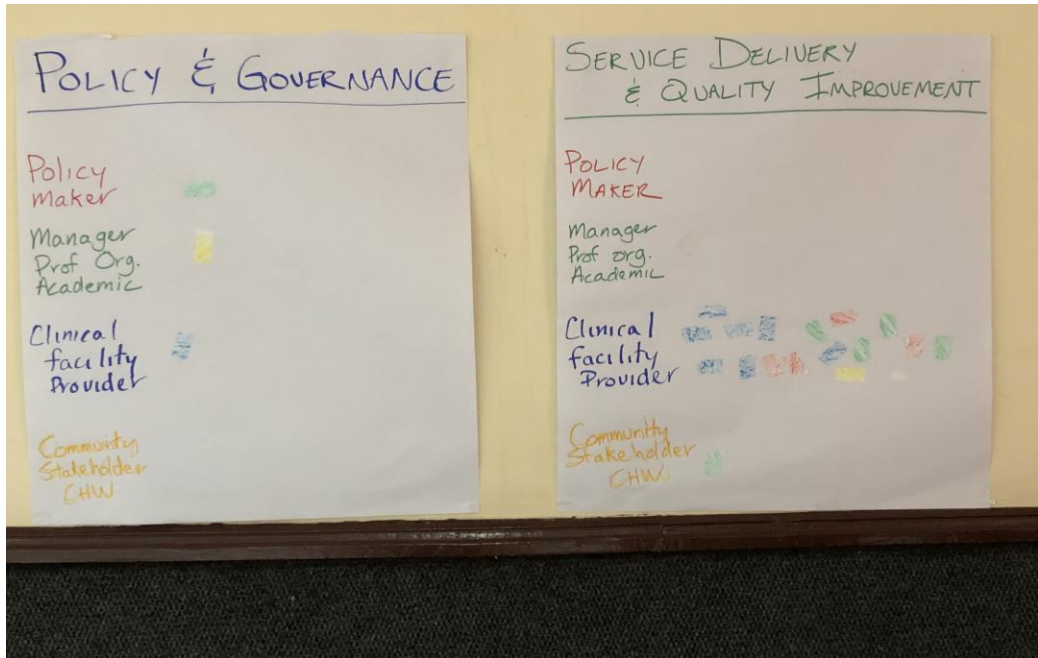 POLICY & GOVERNANCE
Policy
Maker
Manager
Prof Org.
Academic
Clinical
facility
Provider
Community
Stakeholder
CHW
SERVICE DELIVERY
& QUALITY IMPROVEMENT
POLICY
MAKER
Manager
Prof org.
Academic
Clinical
facility
Provider
Community
Stakeholder
CHW